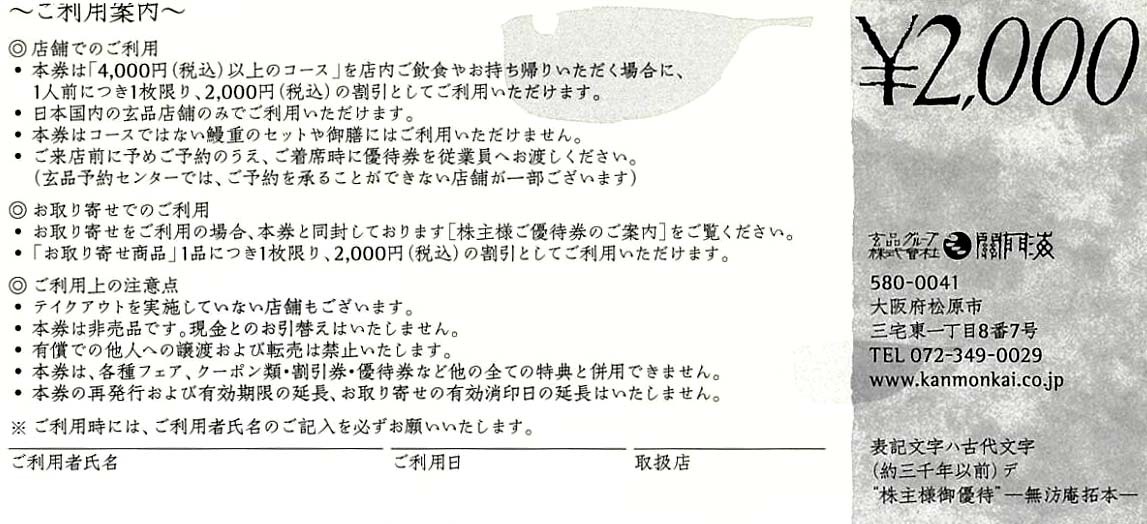 ～ご利用案内～
◎ 店舗でのご利用
• 本券は「4,000円（税込）以上のコース」を店内ご飲食やお持ち帰りいただく場合に、
1人前につき1枚限り、2,000円（税込）の割引としてご利用いただけます。
• 日本国内の玄品店舗のみでご利用いただけます。
• 本券はコースではない鰻重のセットや御膳にはご利用いただけません。
• ご来店前に予めご予約のうえ、ご着席時に優待券を従業員へお渡しください。
（玄品予約センターでは、ご予約を承ることができない店舗が一部ございます）
◎ お取り寄せでのご利用
• お取り寄せをご利用の場合、本券と同封しております［株主様ご優待券のご案内］をご覧ください。
• 「お取り寄せ商品」1品につき1枚限り、2,000円（税込）の割引としてご利用いただけます。
◎ ご利用上の注意点
• テイクアウトを実施していない店舗もございます。
• 本券は非売品です。現金とのお引替えはいたしません。
• 有償での他人への譲渡および転売は禁止いたします。
• 本券は、各種フェア、クーポン類・割引券・優待券など他の全ての特典と併用できません。
• 本券の再発行および有効期限の延長、お取り寄せの有効消印日の延長はいたしません。
※ ご利用時には、ご利用者氏名のご記入を必ずお願いいたします。
ご利用者氏名 ご利用日 取扱店
¥2,000
玄品グループ
株式會社 関門海
580-0041
大阪府松原市
三宅東一丁目8番7号
TEL 072-349-0029
www.kanmonkai.co.jp
表記文字ハ古代文字
（約三千年以前）デ
“株主様御優待”—無汸庵拓本—